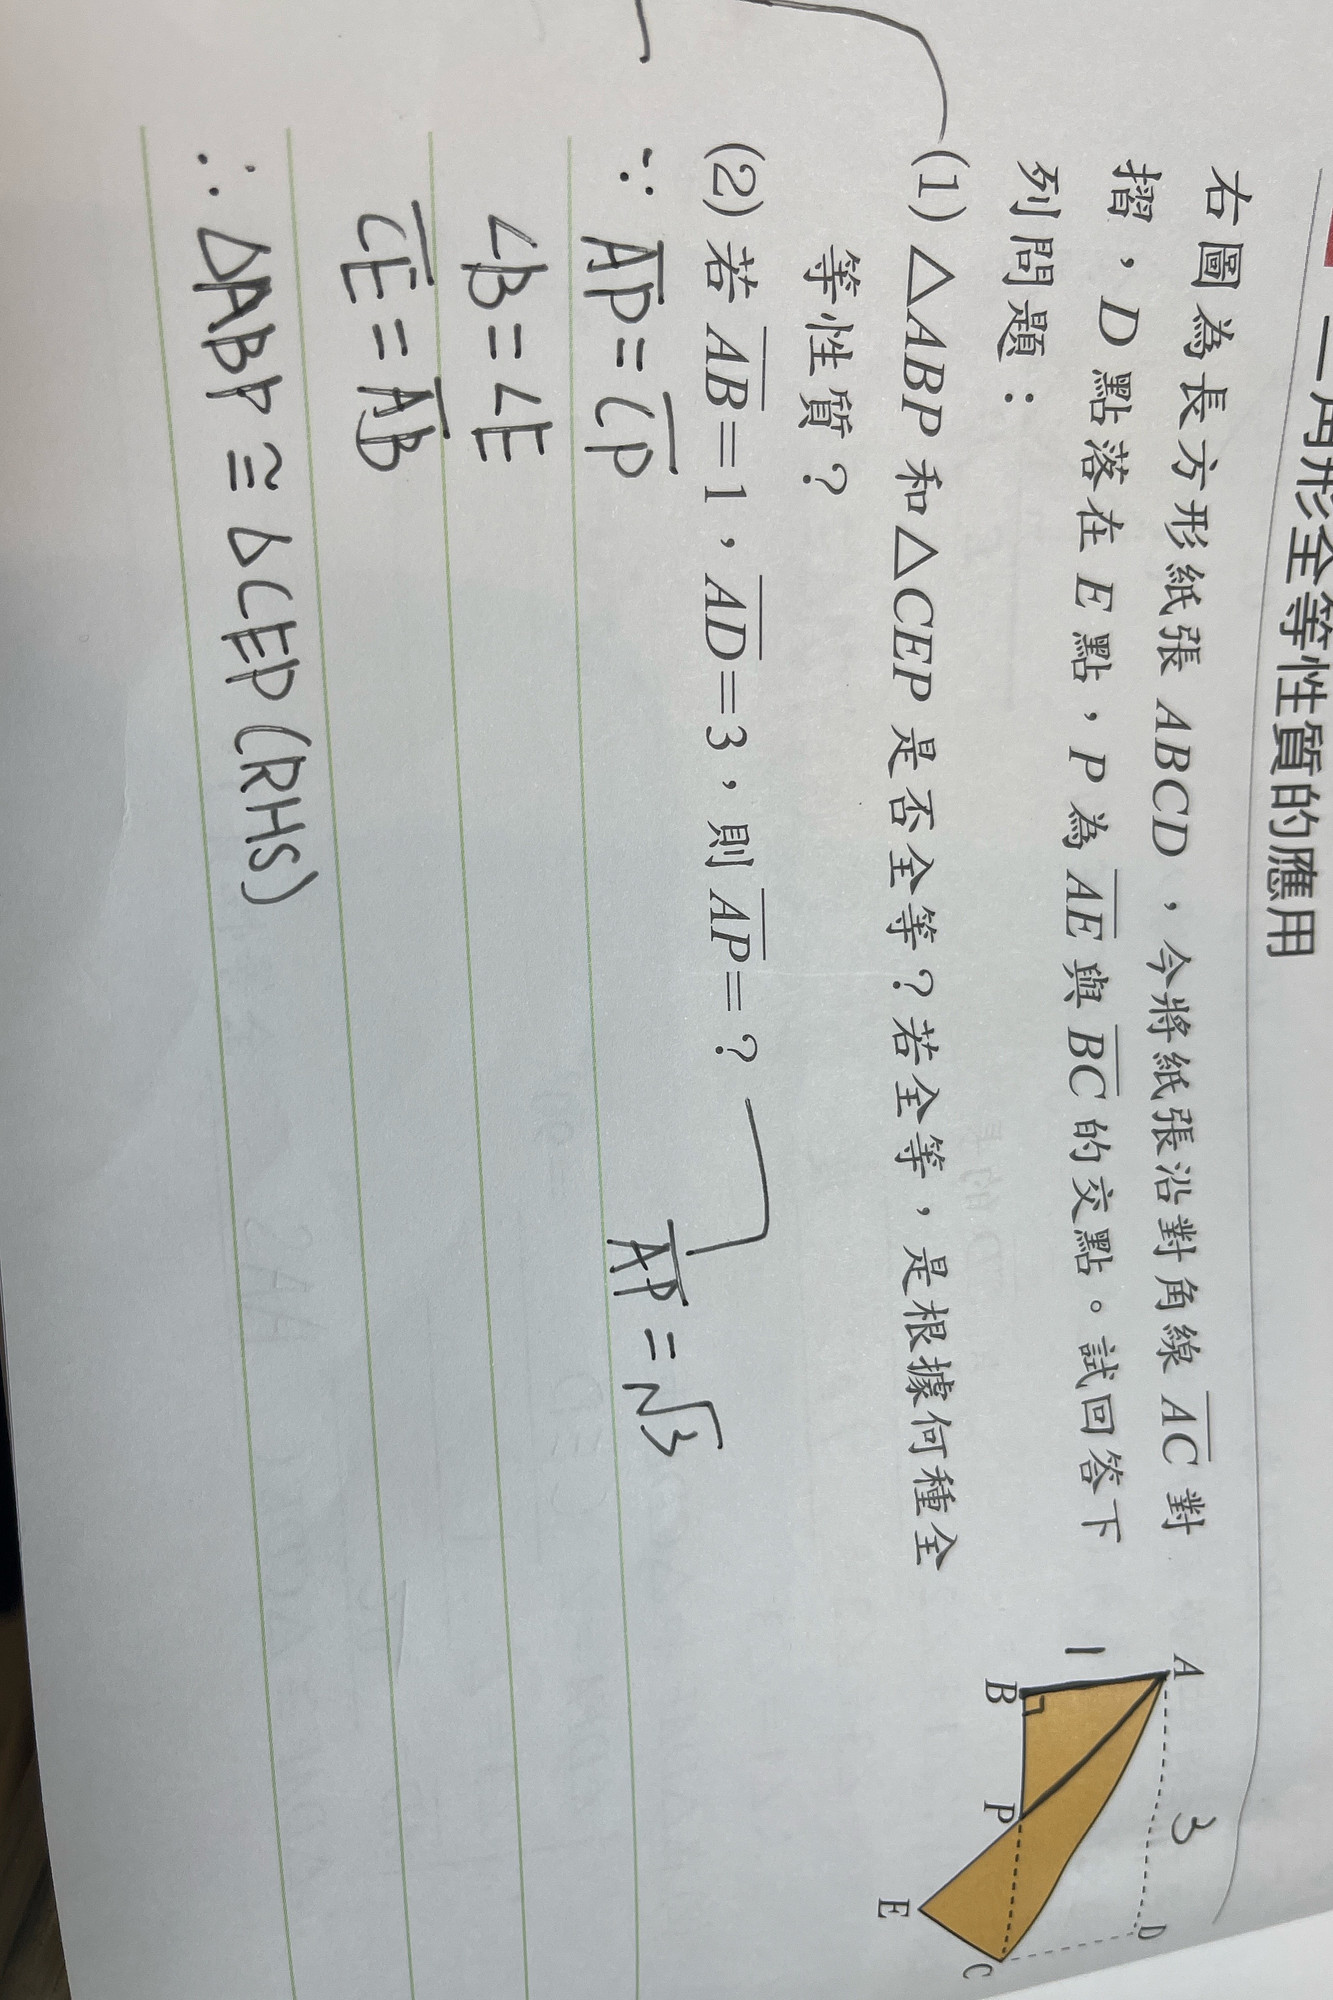 三角形全等性質的應用
右圖為長方形紙張 ABCD，今將紙張沿對角線 AC 對
摺，D 點落在 E 點，P 為 AE 與 BC 的交點。試回答下
列問題：
(1) △ABP 和 △CEP 是否全等？若全等，是根據何種全
等性質？
(2) 若 AB=1，AD=3，則 AP=？
A
3
D
1
B
P
E
C
∵ AP = CP
AP = √3
∠B = ∠E
CE = AB
∴ △ABP ≅ △CEP (RHS)